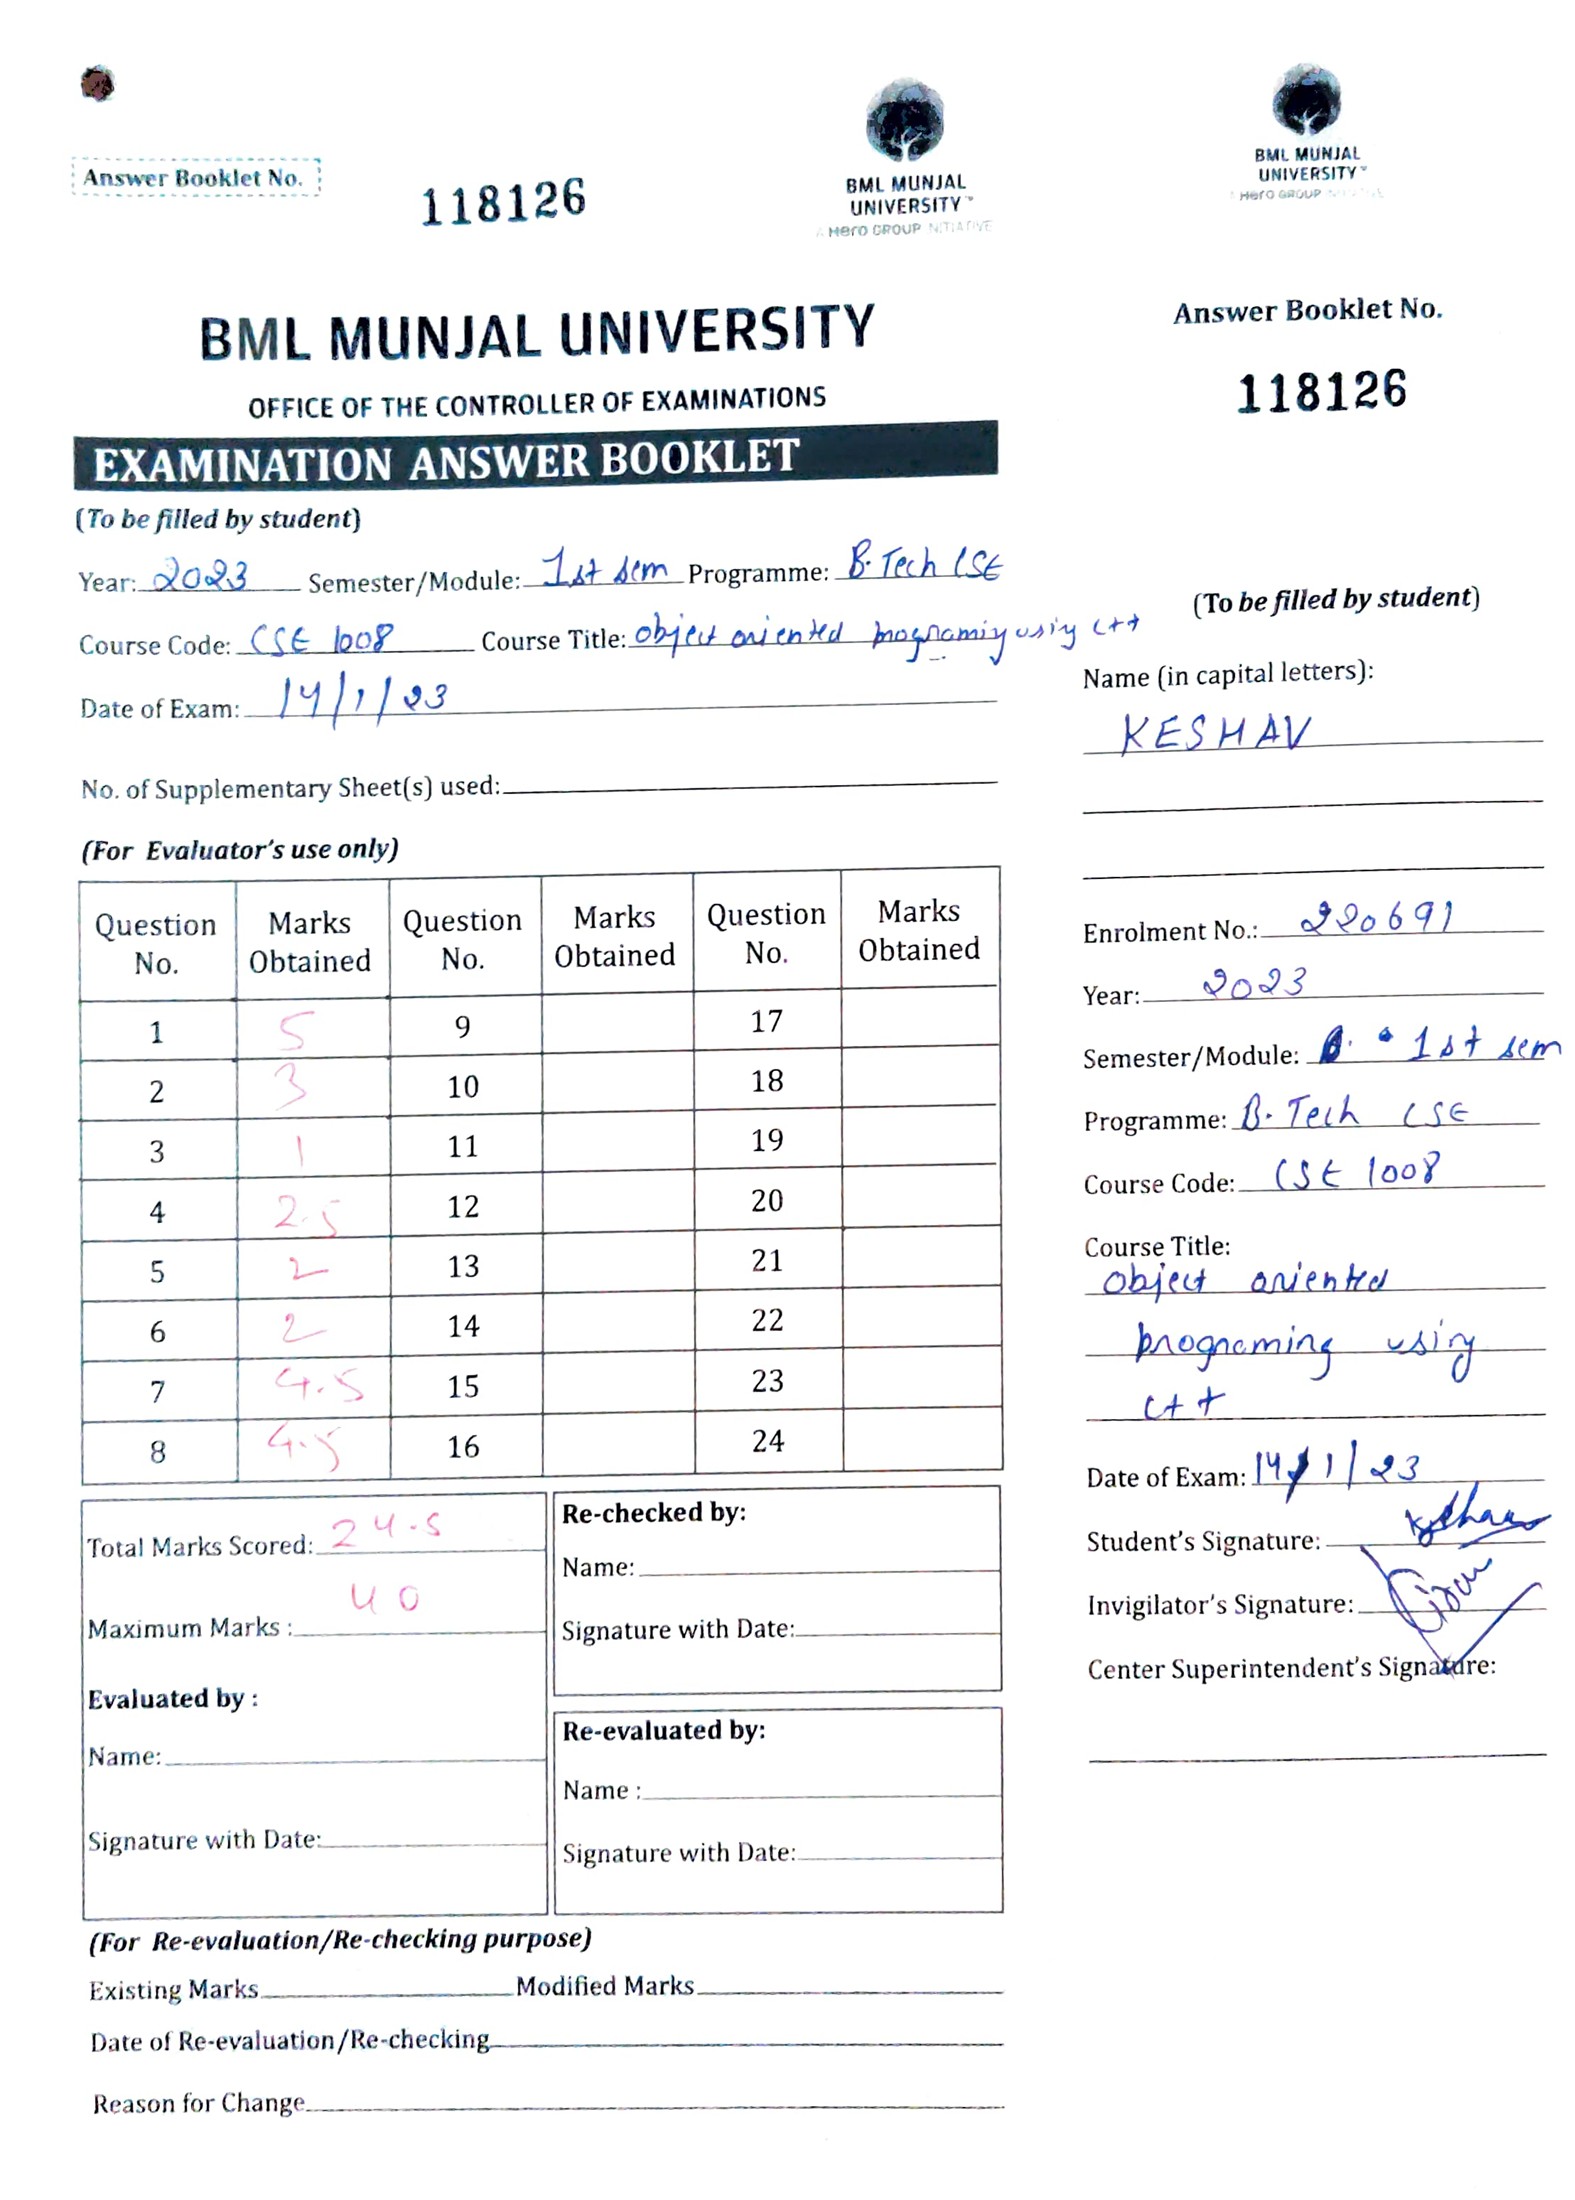 Answer Booklet No.
118126
BML MUNJAL
UNIVERSITY™
A Hero GROUP INITIATIVE
BML MUNJAL UNIVERSITY
OFFICE OF THE CONTROLLER OF EXAMINATIONS
EXAMINATION ANSWER BOOKLET
(To be filled by student)
Year: 2023 Semester/Module: 1st sem Programme: B.Tech CSE
Course Code: CSE 1008 Course Title: object oriented programiy usiy C++
Date of Exam: 14/1/23
No. of Supplementary Sheet(s) used:
(For Evaluator's use only)
Question No. Marks Obtained Question No. Marks Obtained Question No. Marks Obtained
1 5 9 17
2 3 10 18
3 1 11 19
4 2.5 12 20
5 2 13 21
6 2 14 22
7 4.5 15 23
8 4.5 16 24
Total Marks Scored: 24.5
Maximum Marks : 40
Evaluated by :
Name:
Signature with Date:
Re-checked by:
Name:
Signature with Date:
Re-evaluated by:
Name :
Signature with Date:
(For Re-evaluation/Re-checking purpose)
Existing Marks Modified Marks
Date of Re-evaluation/Re-checking
Reason for Change
BML MUNJAL
UNIVERSITY™
A Hero GROUP INITIATIVE
Answer Booklet No.
118126
(To be filled by student)
Name (in capital letters):
KESHAV
Enrolment No.: 220691
Year: 2023
Semester/Module: 1st sem
Programme: B.Tech CSE
Course Code: CSE 1008
Course Title:
object oriented
programing using
C++
Date of Exam: 14/1/23
Student's Signature: Keshav
Invigilator's Signature:
Center Superintendent's Signature: